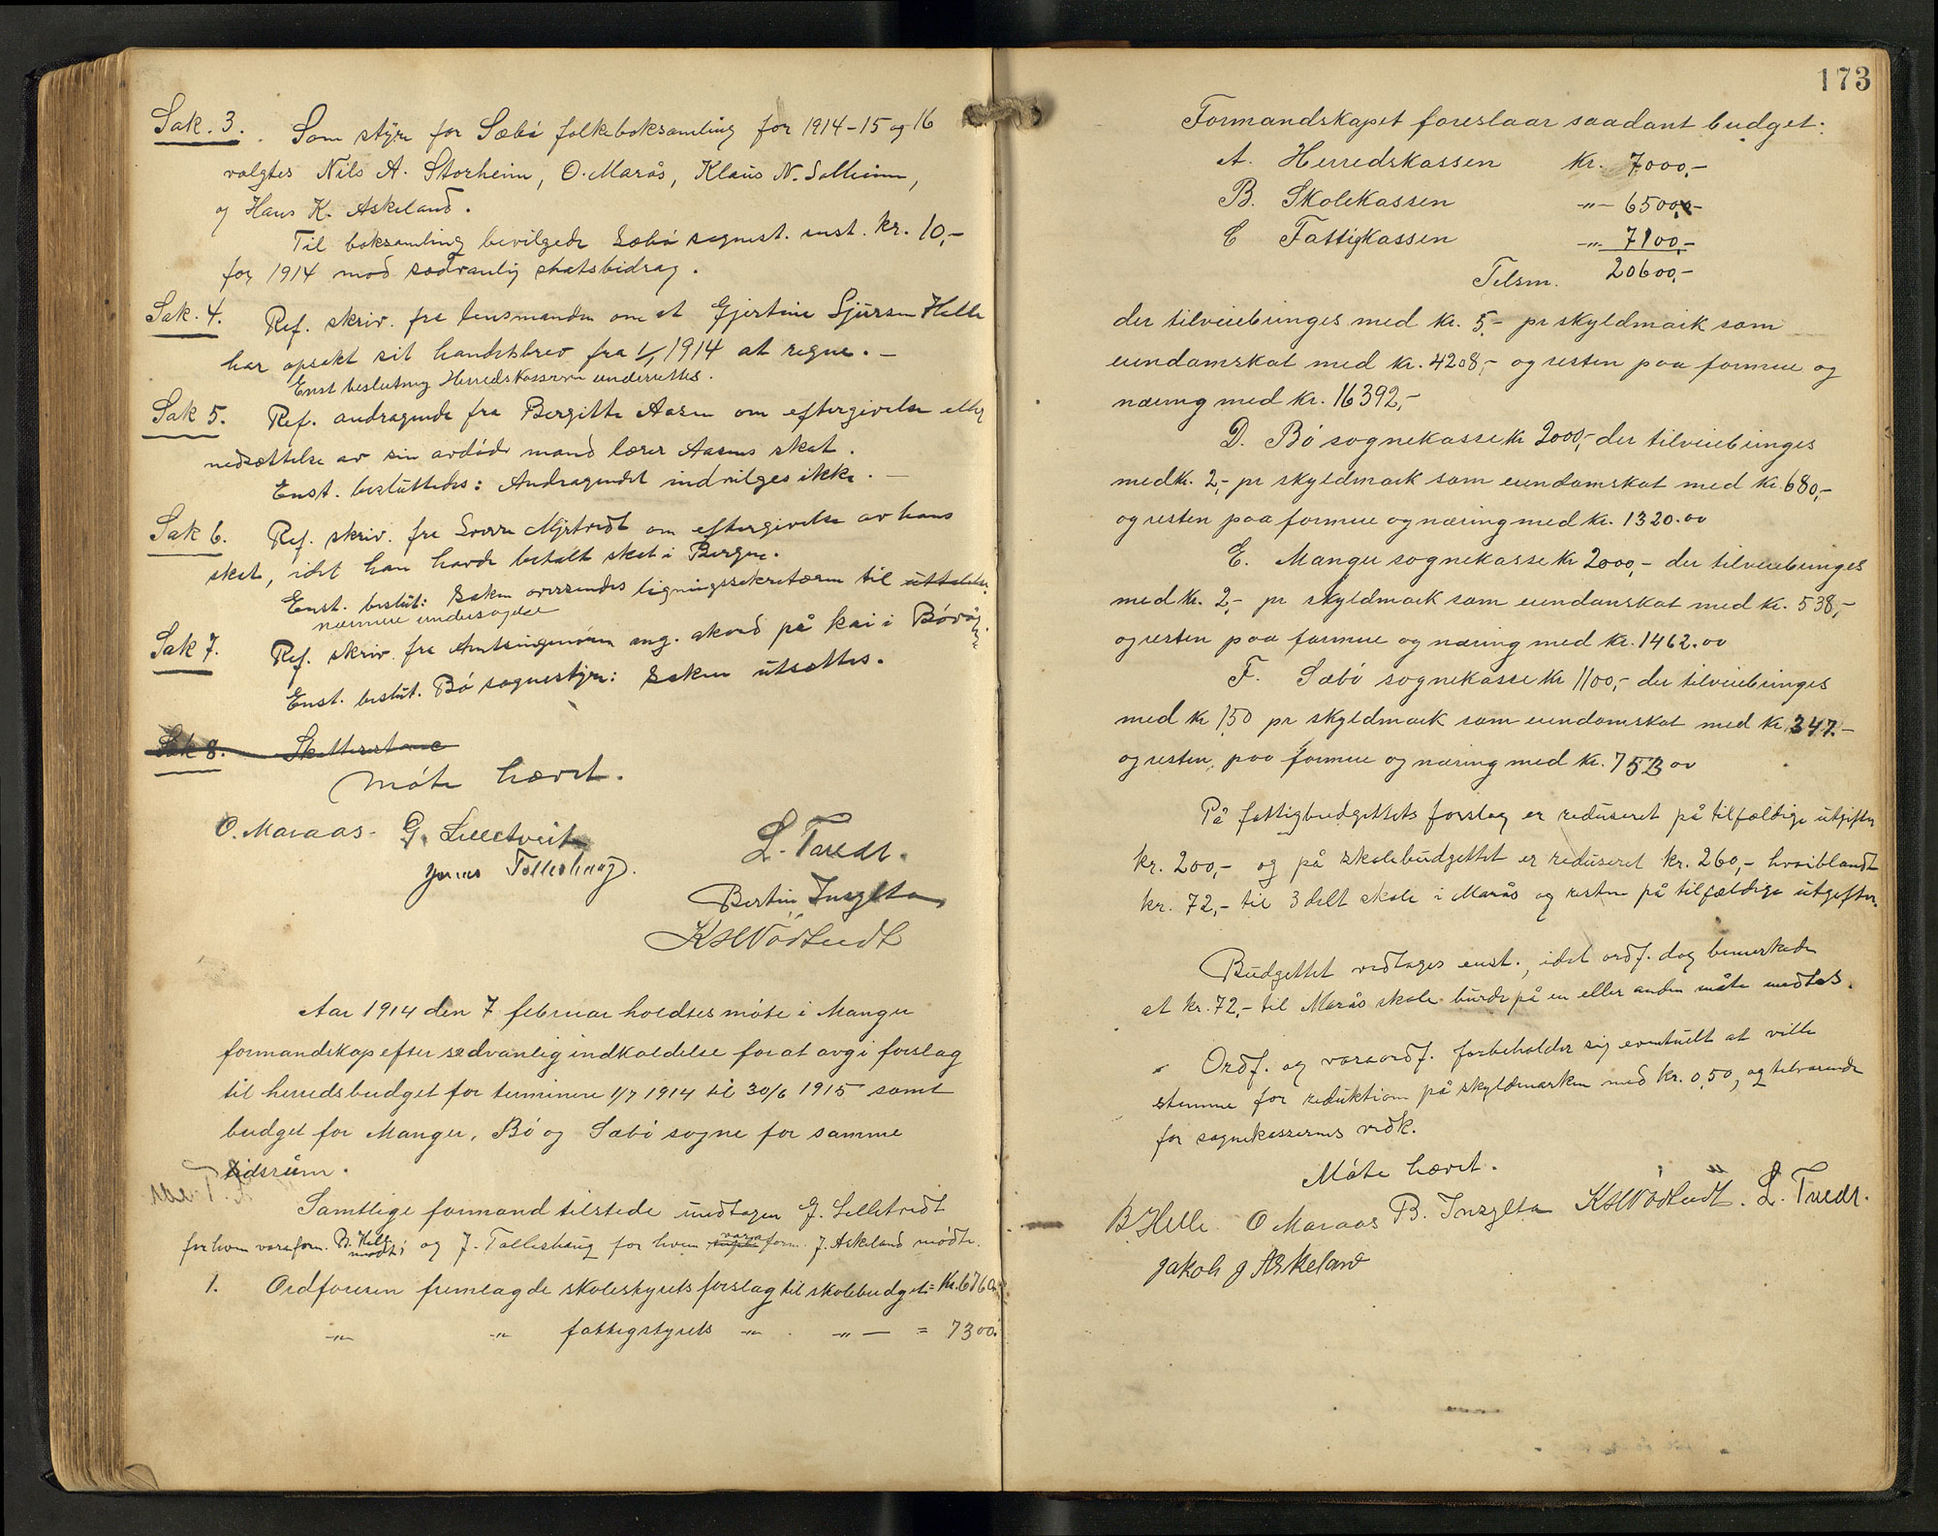 Sak. 3. Som styre for Sæbö folkeboksamling for 1914-15 og 16
valgtes Nils A. Storheim, O. Marås, Klaus N. Solheim,
og Hans K. Askeland.
Til boksamling bevilgede Sæbö sognest. enst. kr. 10,-
for 1914 mod sædvanlig statsbidrag.
Sak. 4. Ref. skriv. fra lensmanden om at Gjertine Sjursen Helle
har opsakt sit handelsbrev fra 1/1 1914 at regne. -
Enst beslutning Herredskassereren underrettes.
Sak 5. Ref. andragende fra Bergitte Aasen om eftergivelse eller
nedsættelse av sin avdöde mand lærer Aasens skat.
Enst. besluttedes: Andragendet indvilges ikke. -
Sak 6. Ref. skriv. fra Sverre Mjetvedt om eftergivelse av hans
skat, idet han havde betalt skat i Bergen.
Enst. beslut: Saken oversendes ligningssekretæren til uttalelse.
nærmere undersøgelse
Sak 7. Ref. skriv. fra Amtsingeniören ang. akord på kai i Bövåg.
Enst. beslut. Bö sognestyre: Saken utsættes.
Sak 8.
Möte hævet.
O. Maraas. G. Lilletveit L. Tvedt.
Jenes Tolleshaug.
Bertin Inzelta
K H Nödtvedt
Aar 1914 den 7 februar holdtes möte i Manger
formandskap efter sedvanlig indkaldelse for at avgi forslag
til herredsbudget for terminen 1/7 1914 til 30/6 1915 samt
budget for Manger, Bö og Sæbö sogne for samme
tidsrum.
Samtlige formænd tilstede undtagen G. Lilletvedt
for hvem varaform. B. Helle mödte og J. Tolleshaug for hvem varaform. J. Askeland mödte.
1. Ordföreren fremlagde skolestyrets forslag til skolebudget = Kr. 6760,-
-"- -"- fattigstyrets -"- -"- = 7300.
173
Formandskapet foreslaar saadant budget:
A. Herredskassen kr. 7000,-
B. Skolekassen -"- 6500,-
C Fattigkassen -"- 7100,-
Tilsm. 20600,-
der tilveiebringes med kr. 5,- pr skyldmark som
eiendomskat med kr. 4208,- og resten paa formue og
næring med kr. 16392,-
D. Bö sognekasse kr 2000,- der tilveiebringes
med kr. 2,- pr skyldmark som eiendomskat med kr. 680,-
og resten paa formue og næring med kr. 1320.00
E. Manger sognekasse kr 2000,- der tilveiebringes
med kr. 2,- pr skyldmark som eiendomskat med kr. 538,-
og resten paa formue og næring med kr. 1462.00
F. Sæbö sognekasse kr 1100,- der tilveiebringes
med kr 1,50 pr skyldmark som eiendomskat med kr 347.-
og resten paa formue og næring med kr. 753 00
På fattigbudgettets forslag er reduseret på tilfældige utgifter
kr. 200,- og på skolebudgettet er reduseret kr. 260,- hvoriblandt
kr. 72,- til 3 delt skole i Marås og resten på tilfældige utgifter.
Budgettet vedtages enst., idet ordf. dog bemerkede
at kr. 72,- til Marås skole burde på en eller anden måte medtas.
Ordf. og varaordf. forbeholder sig eventuelt at ville
stemme for reduktion på skyldmarken med kr. 0,50, og tilsvarende
for sognekassernes vedk.
Möte hævet.
B. Helle O Maraas B. Inzelta K H Nödtvedt. L. Tvedt.
Jakob J Askeland